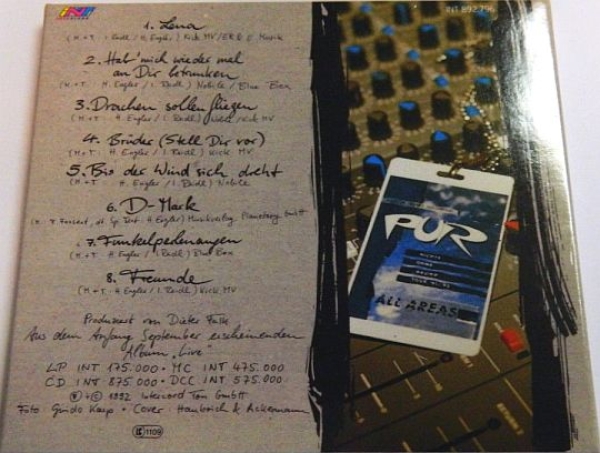 INT 892.796
1. Lena
(M+T: I. Reidl / H. Engler) Kick MV / Musik
2. Hab' mich wieder mal
an Dir betrunken
(M+T: H. Engler / I. Reidl) Nobile / Blue Box
3. Drachen sollen fliegen
(M+T: H. Engler / I. Reidl) Kick MV
4. Brüder (Stell Dir vor)
(M+T: H. Engler / I. Reidl) Kick MV
5. Bis der Wind sich dreht
(M+T: H. Engler / I. Reidl) Nobile
6. D-Mark
H. Engler) Musikverlag GmbH
7. Funkelperlenaugen
(M+T: H. Engler / I. Reidl) Blue Box
8. Freunde
(M+T: H. Engler / I. Reidl) Kick MV
Produziert von Dieter Falk
Aus dem Anfang September erscheinenden
Album, Live
LP INT 175.000 • MC INT 475.000
CD INT 875.000 • DCC INT 575.000
℗ + © 1992 Intercord Ton GmbH
Foto Guido Karp • Cover Hambrich & Ackermann
LC 1109
PUR
ALL AREAS